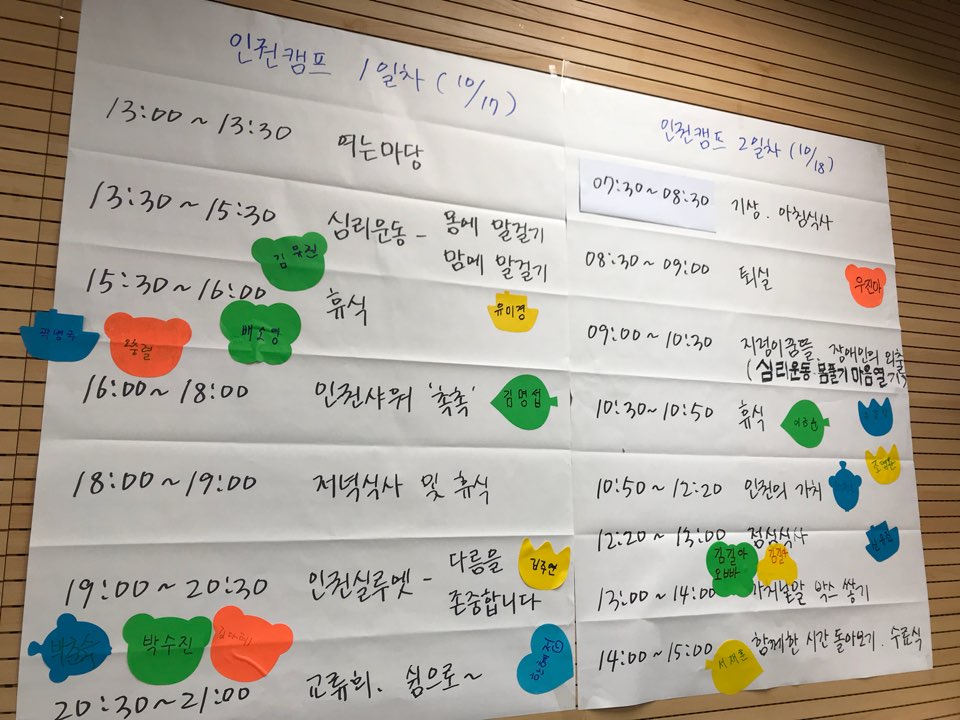 인권캠프 1일차 (10/17)
13:00 ~ 13:30 여는마당
13:30 ~ 15:30 심리운동 - 몸에 말걸기
맘에 말걸기
김유진
15:30 ~ 16:00 휴식
유미경
배소영
16:00 ~ 18:00 인권샤워 '촉촉'
김명섭
18:00 ~ 19:00 저녁식사 및 휴식
19:00 ~ 20:30 인권실루엣 - 다름을
존중합니다
박수진
한혜정
20:30 ~ 21:00 교류회. 쉼으로~
인권캠프 2일차 (10/18)
07:30 ~ 08:30 기상. 아침식사
08:30 ~ 09:00 퇴실
우진아
09:00 ~ 10:30 지적이꿈뜰. 장애인의 외출
(심리운동. 몸풀기 마음열기)
10:30 ~ 10:50 휴식
10:50 ~ 12:20 인권의 가치
12:20 ~ 13:00 점심식사
김길아
오빠
김길아
13:00 ~ 14:00 가치낱말 박스 쌓기
14:00 ~ 15:00 함께한 시간 돌아보기. 수료식
서재흔